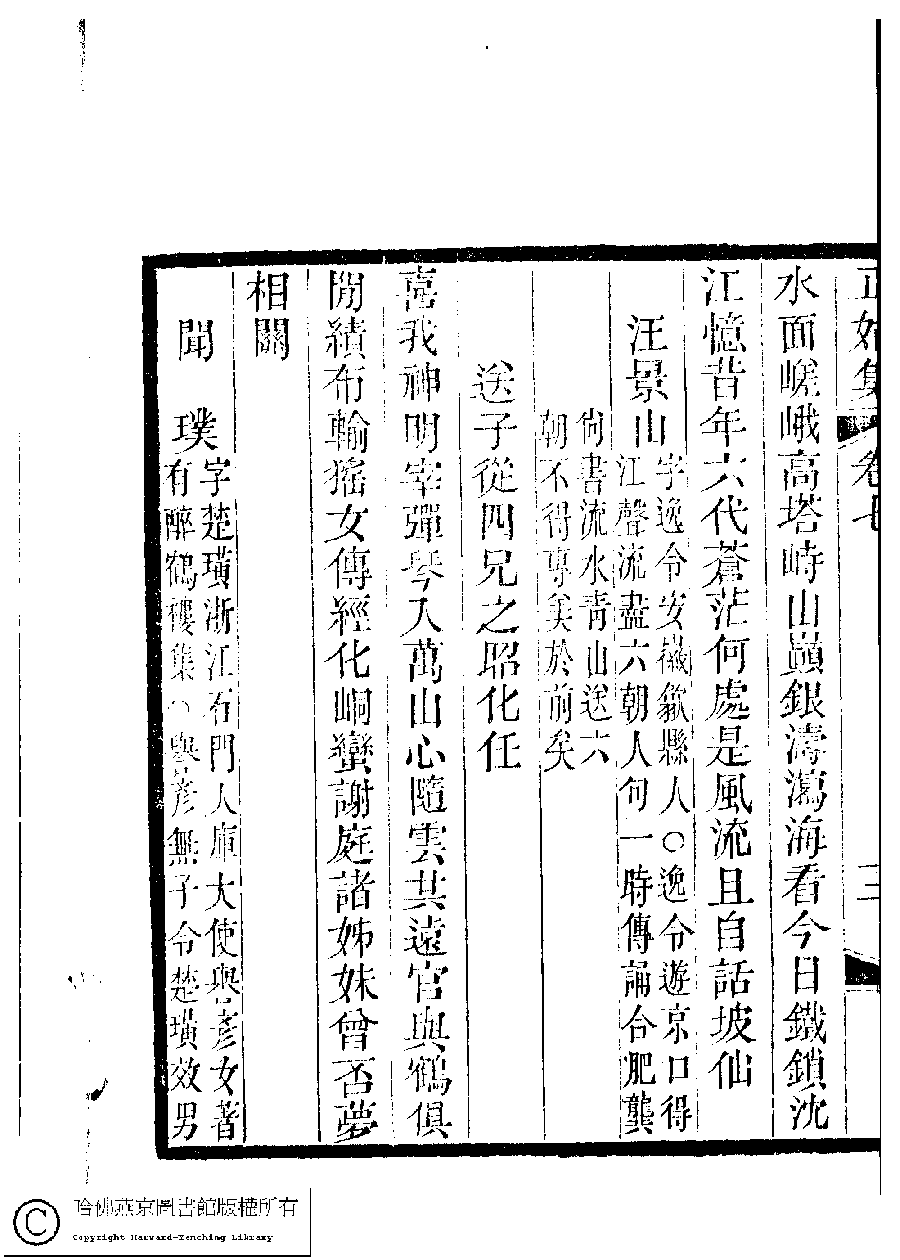 正始集 卷七 三
水面嵯峨高塔峙山巔銀濤瀉海看今日鐵鎖沈
江憶昔年六代蒼茫何處是風流且自話坡仙
汪景山
字逸令安徽歙縣人○逸令遊京口得
江聲流盡六朝人句一時傳誦合肥龔
尙書流水靑山送六
朝不得專美於前矣
送子從四兄之昭化任
喜我神明宰彈琴入萬山心隨雲共遠官與鶴俱
閒績布輸猺女傳經化峒蠻謝庭諸姊妹曾否夢
相關
聞璞
字楚璜浙江石門人庫大使與彥女著
有醉鶴樓集○與彥無子令楚璜效男
哈佛燕京圖書館版權所有
Copyright Harvard-Yenching Library